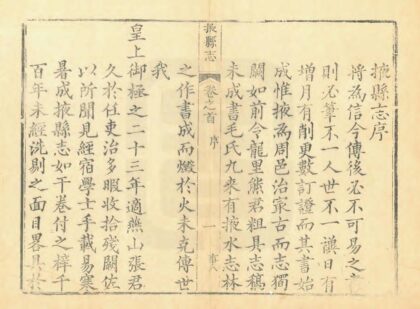 掖縣志序
將為信今傳後必不可易之言
則必筆不一人世不一
增月有削更數訂證而其書始
成惟掖為周邑治最古而志獨
闕如前令龍里熊君粗具志稿
未成書毛氏九來有掖水志林
掖縣志
卷之首
序
一
之作書成而燬於火未克傳世
我
皇上御極之二十三年適燕山張君
久於任吏治多暇收拾殘闕佐
以所聞見經宿學士手裁易寒
暑成掖縣志如干卷付之梓千
百年未經洗剔之面目畧具於